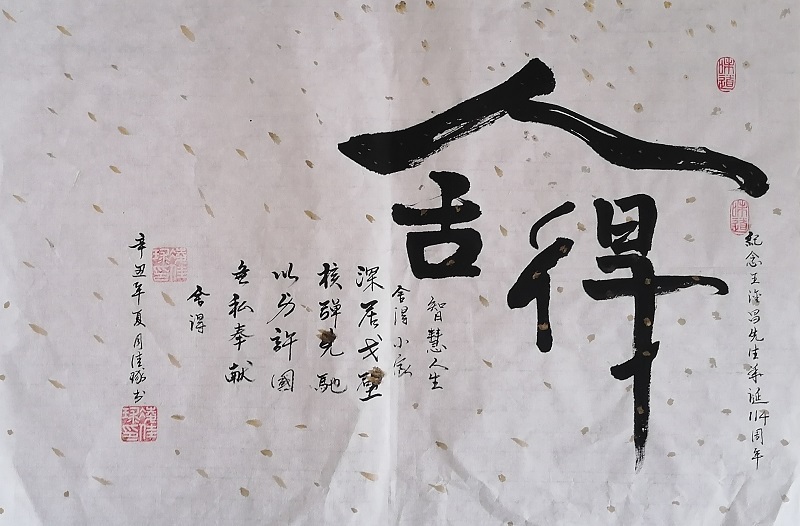 味道
舍得
味道
紀念王淦昌先生華诞114周年
智慧人生
舍得小家
深居戈壁
核弹先馳
以身許國
無私奉献
舍得
辛丑年夏月佳琢书